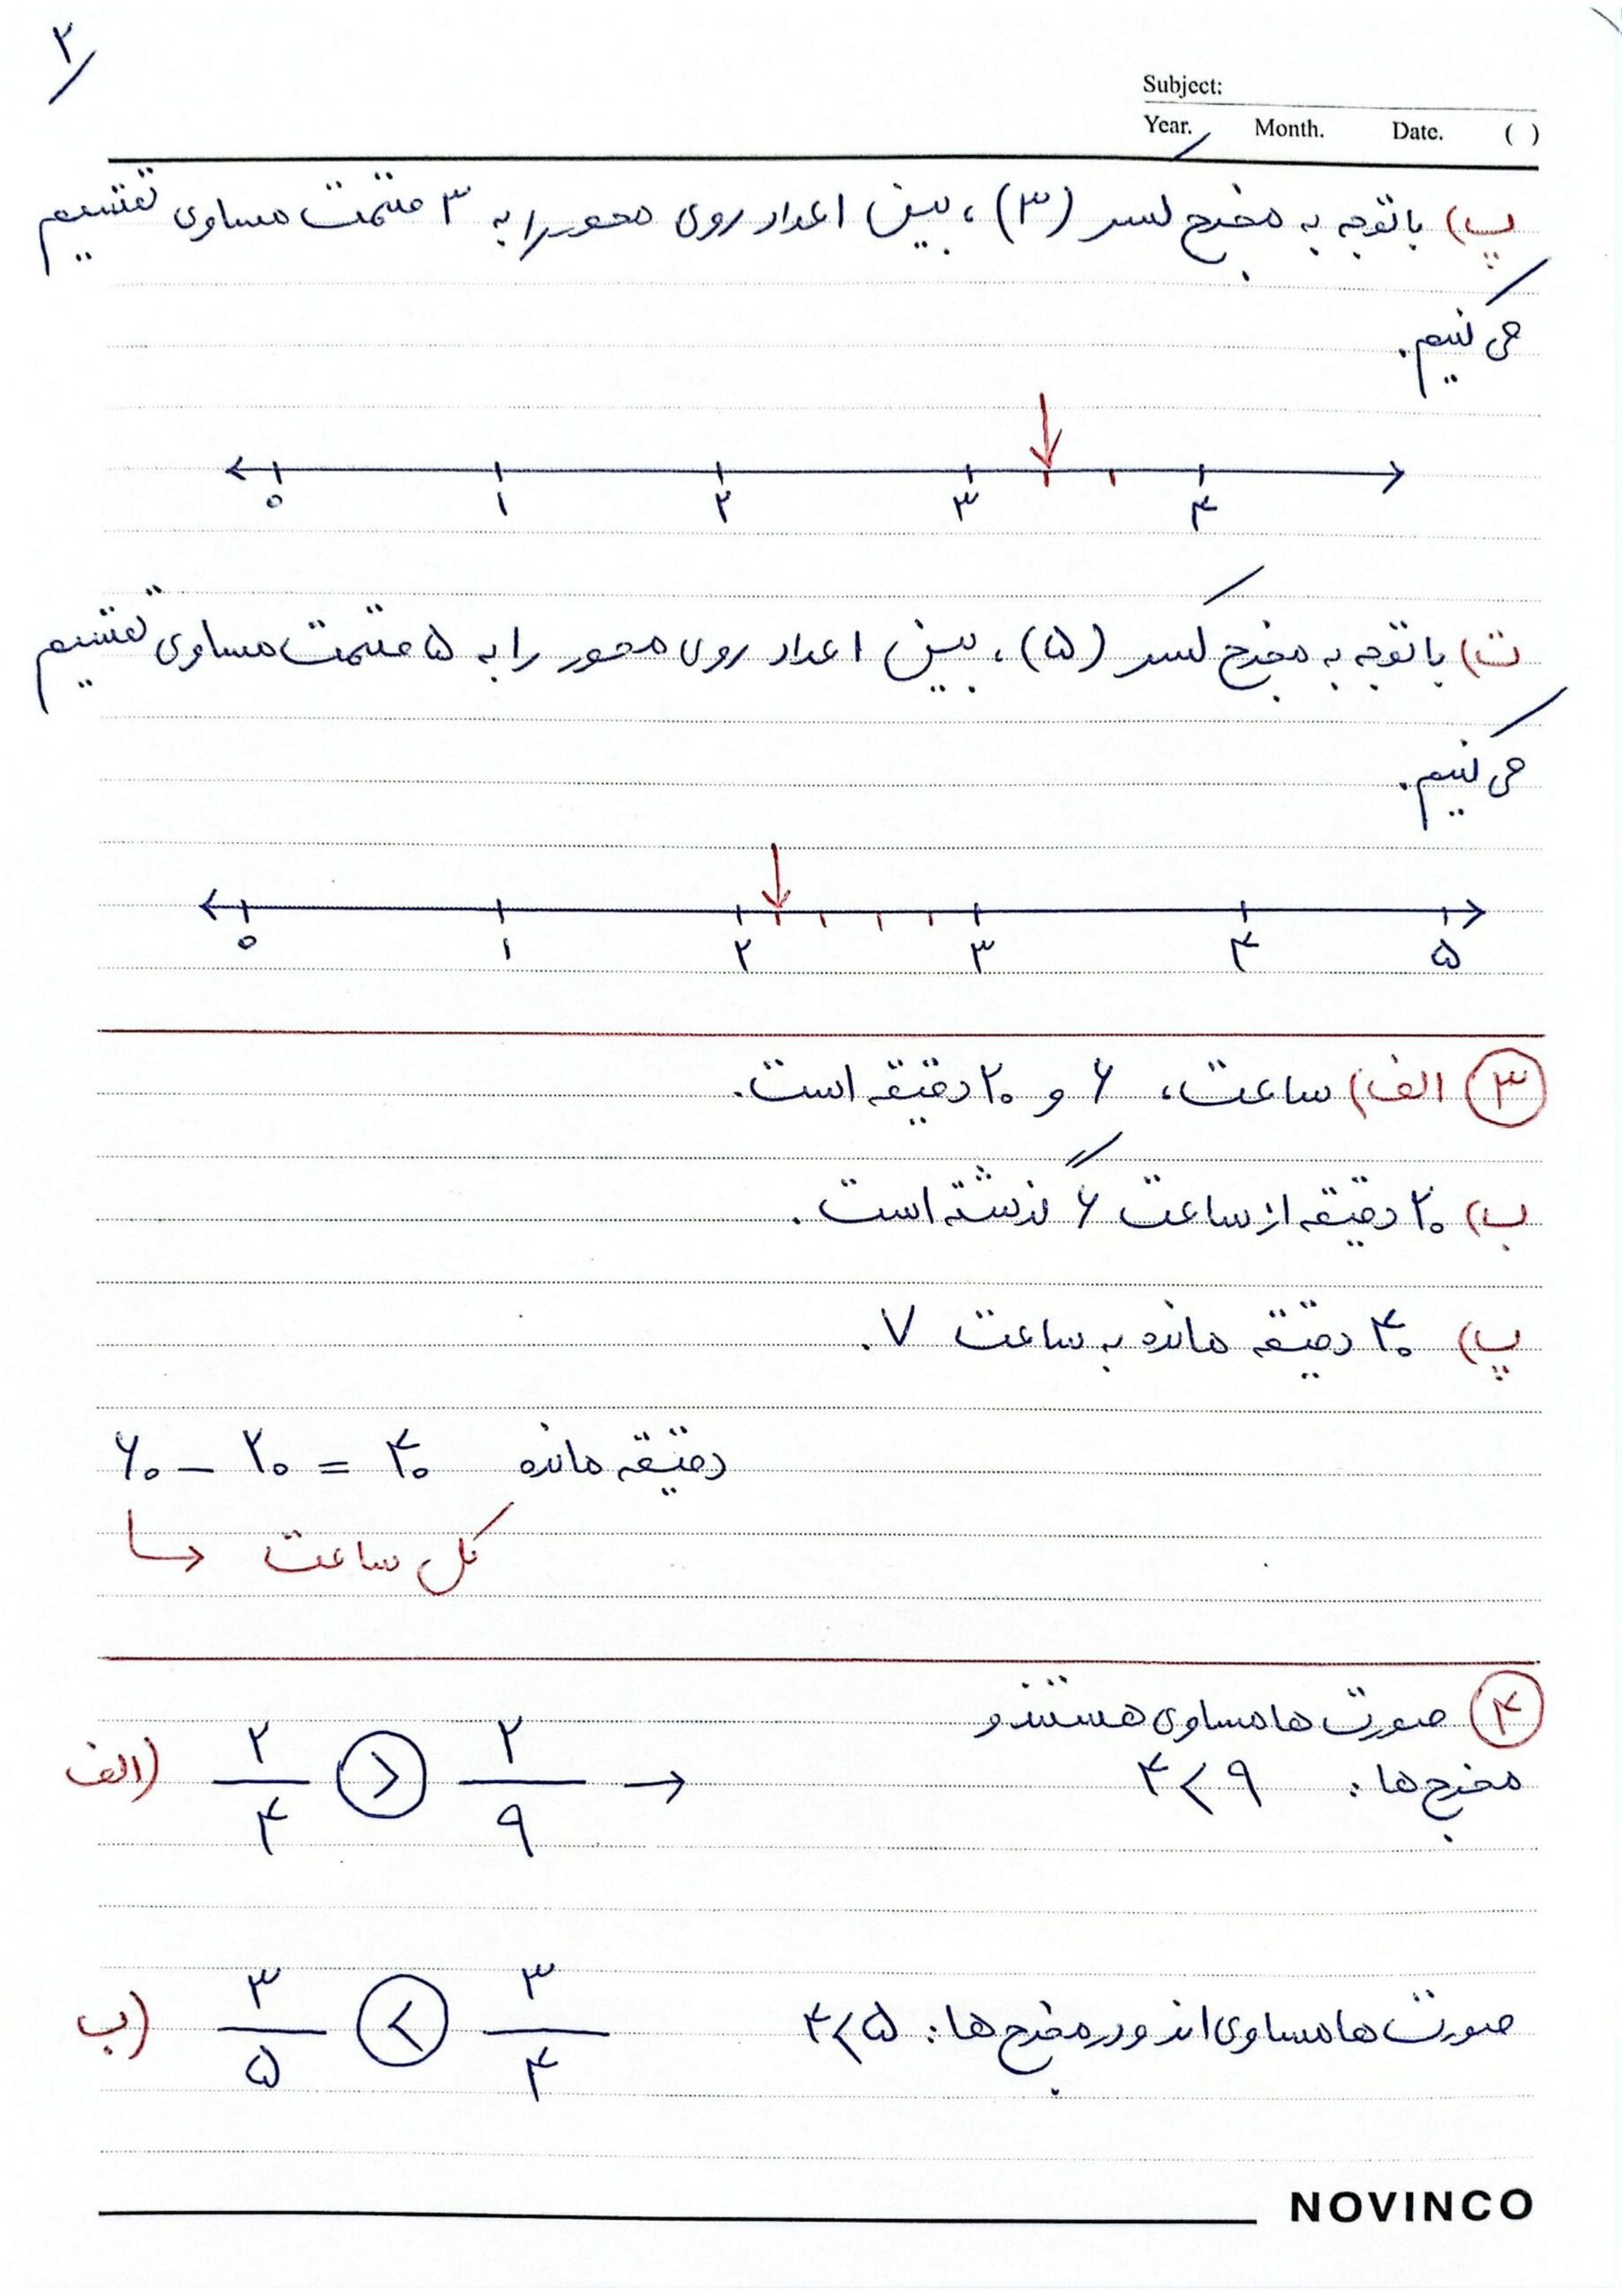 ۲
Subject:
Year. Month. Date. ( )
پ) با توجه به مخرج کسر (۳)، بین اعداد روی محور را به ۳ قسمت مساوی تقسیم
می کنیم.
۰ ۱ ۲ ۳ ۴
ت) با توجه به مخرج کسر (۵)، بین اعداد روی محور را به ۵ قسمت مساوی تقسیم
می کنیم.
۰ ۱ ۲ ۳ ۴ ۵
۳ الف) ساعت، ۶ و ۲۰ دقیقه است.
ب) ۲۰ دقیقه از ساعت ۶ گذشته است.
پ) ۴۰ دقیقه مانده به ساعت ۷.
۶۰ - ۲۰ = ۴۰ دقیقه مانده
کل ساعت
۴ صورت ها مساوی هستند و
الف) ۲/۴ > ۲/۹ → مخرج ها: ۴ < ۹
ب) ۳/۵ < ۳/۴ صورت ها مساوی اند و در مخرج ها: ۴ < ۵
NOVINCO